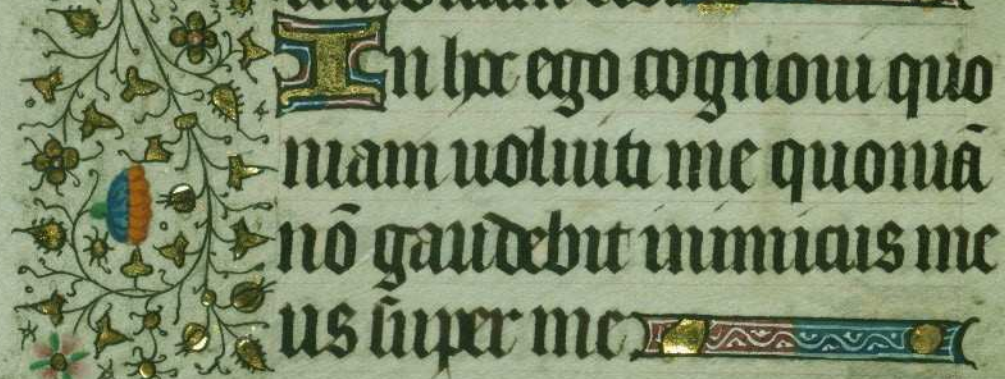 In hoc ego cognoui quo
niam uoluiti me quoniā
nō gaudebit inimicus me
us super me